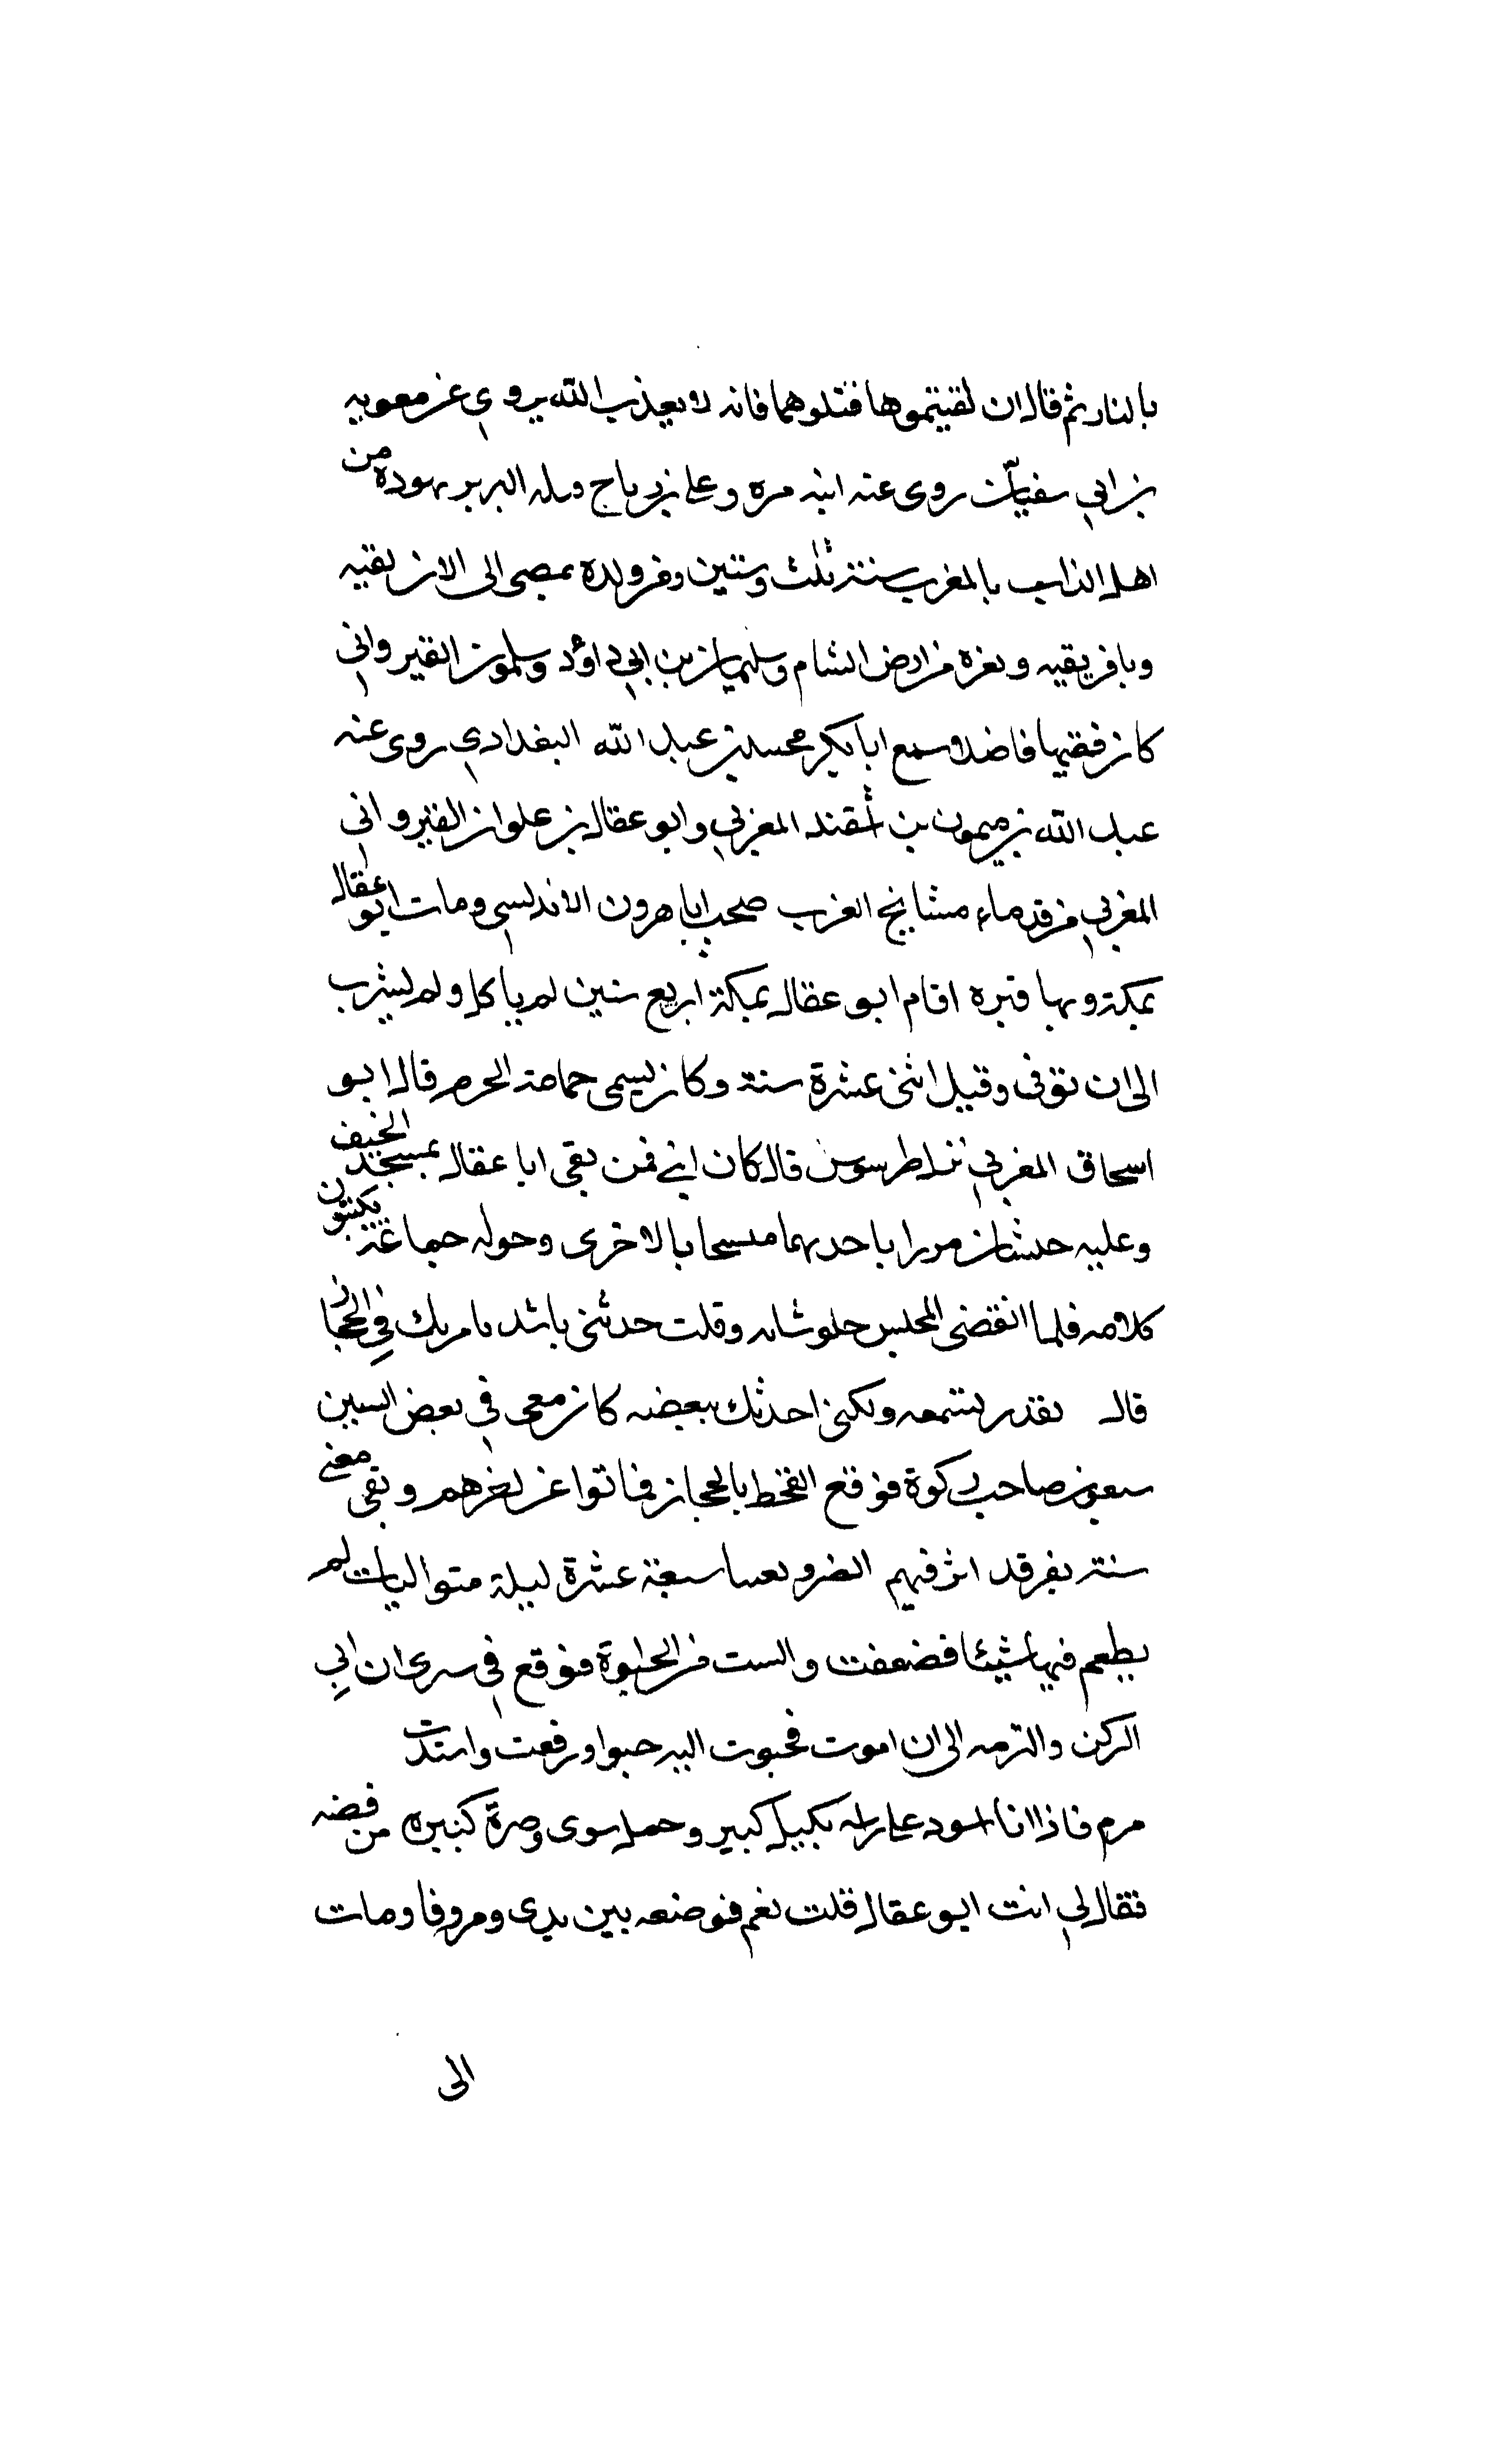 بالنار ثم قال ان لقيتموها فقتلوهما فانه لا يعذب الله يروي عن معويه
بن ابي سفيان روى عنه ابنه مره وعلى بن رباح البربر بهوده من
اهل الذاب بالمغرب سنة ثلث وستين وفر ولده بمصر الى الان بقيه
وبافريقيه وبغزه من ارض الشام وسليمان بن ابي داؤد وسلمون القيرواني
كان فقيها فاضلا سمع ابا بكر محمد بن عبد الله البغدادي روى عنه
عبد الله بن ميمون بن المغربي وابو عقال بن علوان القيرواني
المغربي من قدماء مشايخ الغرب صحب ابا هرون الاندلسي ومات ابو عقال
بمكة وبها قبره اقام ابو عقال بمكة اربع سنين لم ياكل ولم يشرب
الى ان توفى وقيل اثنى عشرة سنة وكان يسمى حمامة الحرم قال ابو
اسحاق المغربي نزيل طرسوس قال كان ابى فمن بقى ابا عقال بمسجد الخيف
وعليه باحدهما بالاخرى وحوله جماعة يكتبون
كلامه فلما انقضى المجلس وقلت حدثنى باشد ما مر بك في الحجاز
قال بقدر تسمعه ولكنى احدثك ببعضه كان معى في بعض السنين
سبعون صاحب ركوة فوقع القحط بالحجاز فماتوا عن اخرهم وبقى معى
ستة نفر قد اثر فيهم الضر وبقينا سبعة عشرة ليلة متواليات لم
يطعم فيها شيئا فضعفت وايست من الحيوة فوقع في سرى ان اتي
الركن والتزمه الى ان اموت فحبوت اليه حبوا ورفعت واستدت
مرم فاذا انا باسود على راسه كبير وحمل سوى وصرة كبيره من فضه
فقال لي انت ابو عقال قلت نعم فوضعه بين يدى ومروفا ومات
الى